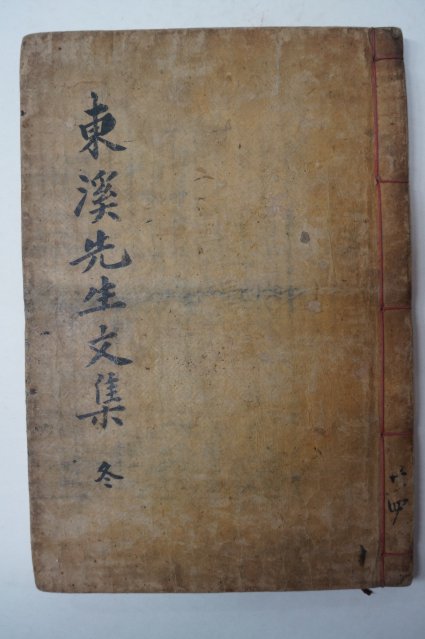 東溪先生文集
冬
四